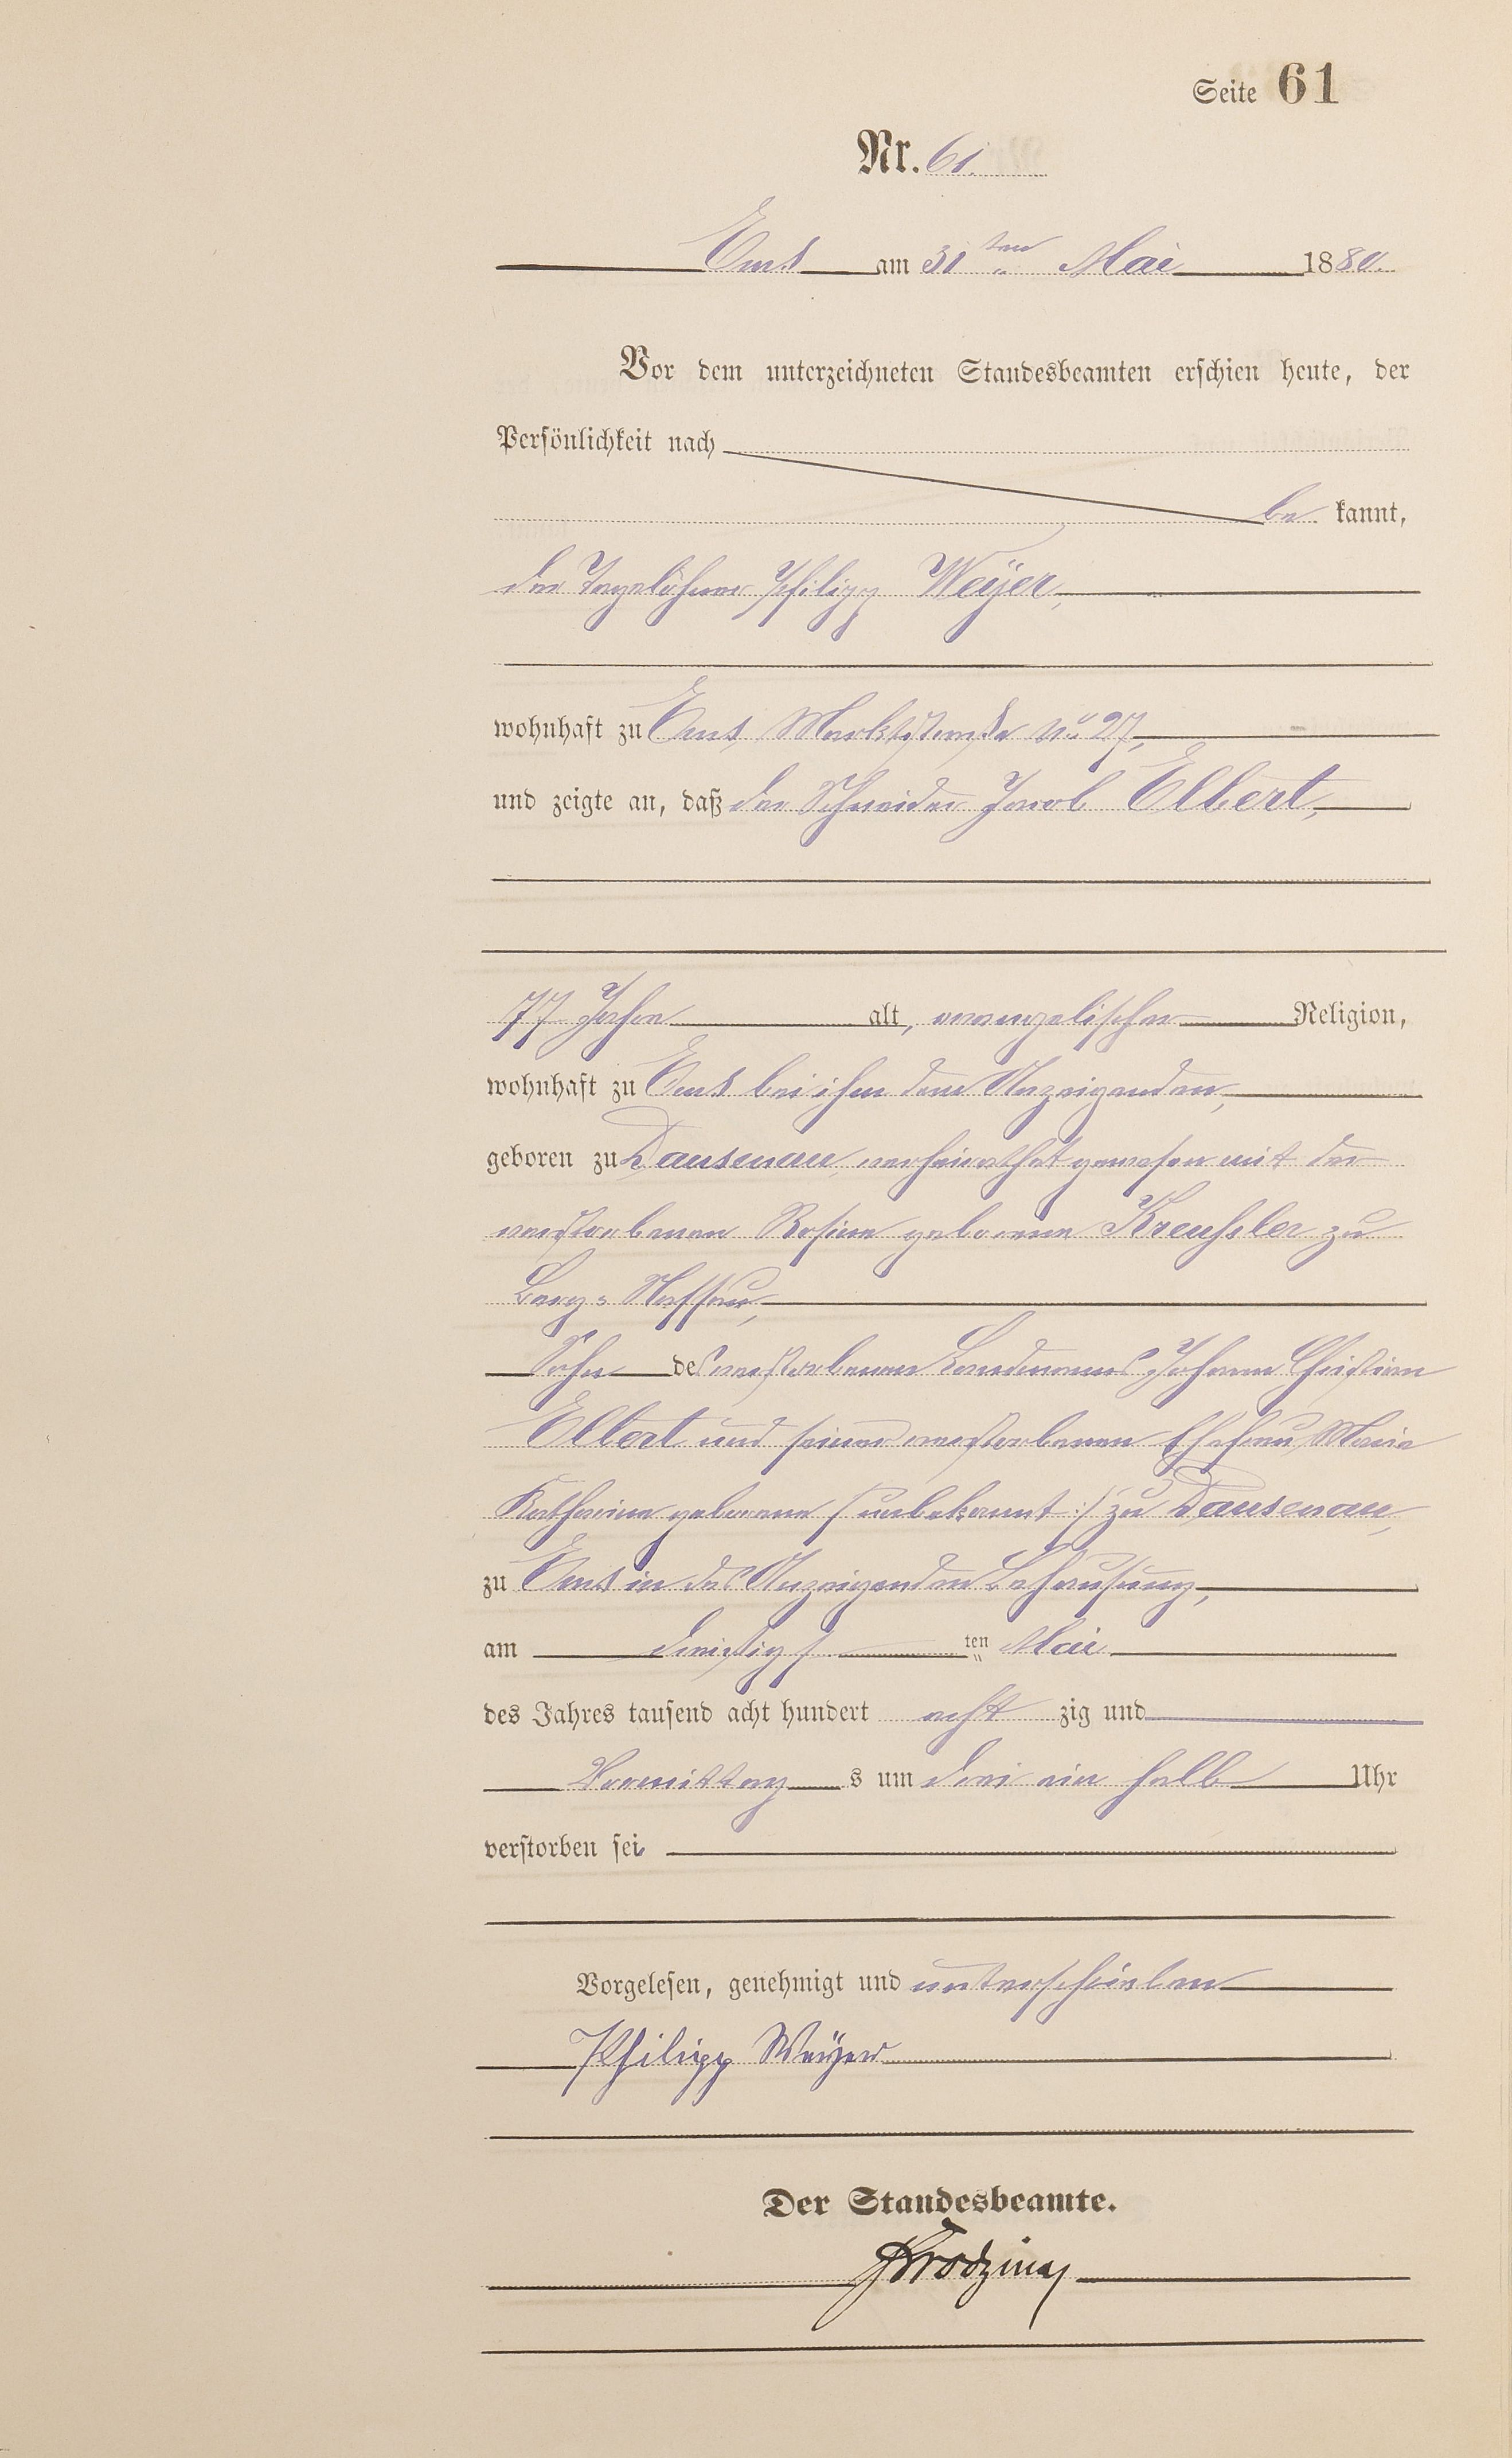 Seite 61
Nr. 61.
Ems am 31ten Mai 1880.
Vor dem unterzeichneten Standesbeamten erschien heute, der
Persönlichkeit nach
be kannt,
der Tagelöhner Philipp Weÿer,
wohnhaft zu Ems Marktstraße No 27,
und zeigte an, daß der Schneider Jacob Elbert,
77 Jahre alt, evangelischer Religion,
wohnhaft zu Ems bei ihm dem Anzeigenden,
geboren zu Dausenau, verheirathet gewesen mit der
verstorbenen Rosine geborene Kreuhsler zu
Berg-Nassau,
Sohn des verstorbenen Landmanns Johann Christian
Elbert und seiner verstorbenen Ehefrau Maria
Katharina geborene /:unbekannt:/ zu Dausenau,
zu Ems in des Anzeigenden Behausung,
am dreißigs ten Mai
des Jahres tausend acht hundert acht zig und
Vormittag s um drei ein halb Uhr
verstorben sei.
Vorgelesen, genehmigt und unterschrieben
Philipp Weÿer
Der Standesbeamte.